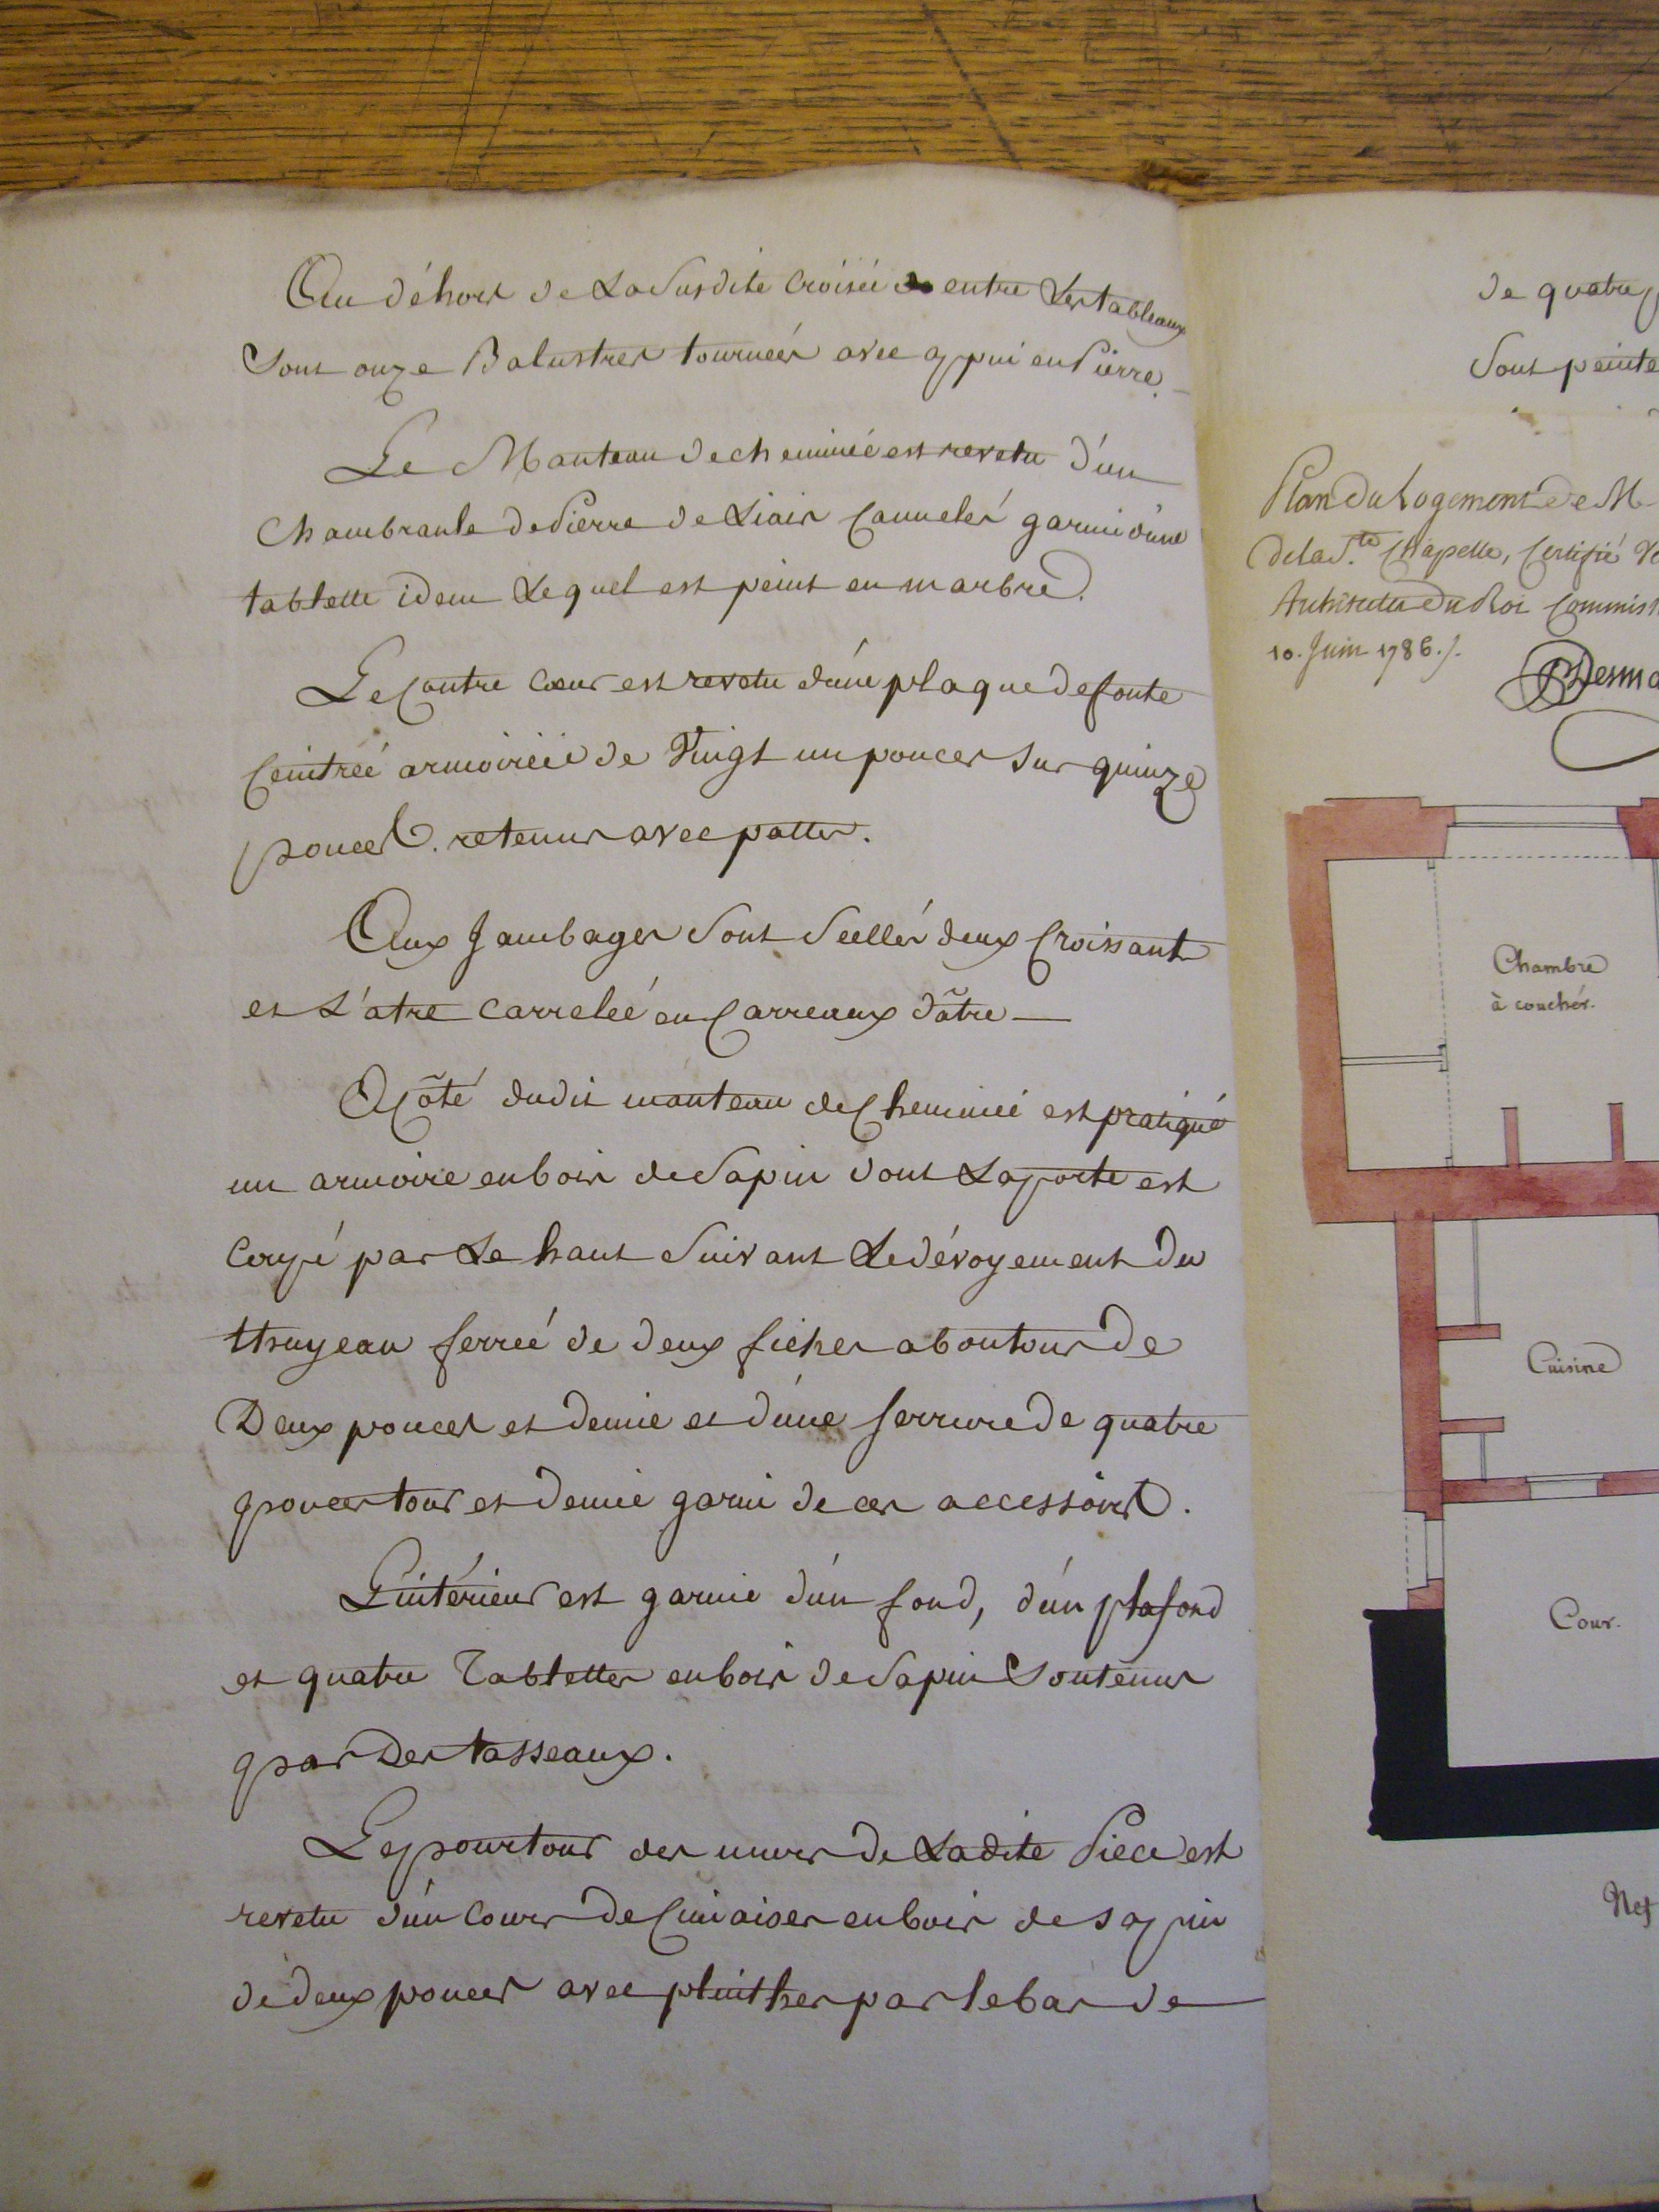 Au déhors de La Susdite Croiseé entre Les tableaux
Sont onze Balustres tourneés avec appui en Pierre.
Le Manteau de cheminée est revetu d'un
Chambranle de Pierre de Liais Cannelés garni d'une
tablette idem Lequel est peint en marbre.
Le Contre Cœur est revetu d'une plaque de fonte
Ceintreé armoirieé de Vingt un pouces sur quinze
pouces. retenus avec pattes.
Aux Jambages sont Scellés deux Croissants
et L'atre carreleé en Carreaux d'âtre
A Côté dudit manteau de Cheminée est pratiqué
un armoire en bois de Sapin dont La porte est
Coupé par Le haut Suivant Le dévoyement du
thuyeau ferreé de deux fiches a boutons de
Deux pouces et demie et d'une serrure de quatre
pouces tour et demie garni de ces accessoires.
L'intérieur est garnie d'un fond, d'un plafond
et quatre Tablettes en bois de Sapin Soutenus
par Des tasseaux.
Le pourtour des murs de Ladite Piece est
revetu d'un Cours de Cimaises en bois de sapin
de deux pouces avec plinthes par le bas de
de quatre
Sont peinte
Plan du Logement de M
de la S.te Chapelle, Certifié
Architecte du Roi Commis
10. Juin 1786./.
Desma
Chambre
à couchér.
Cuisine
Cour.
Nef